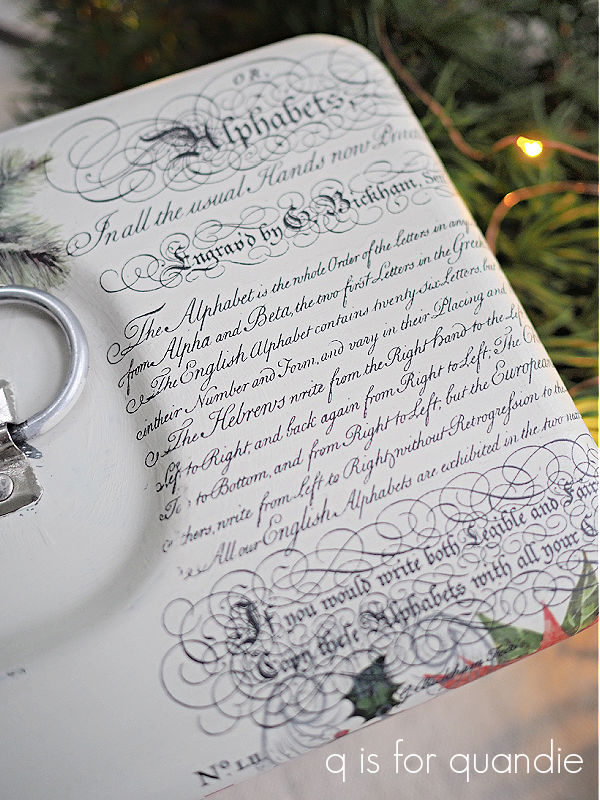 OR,
Alphabets,
In all the usual Hands now
Engrav'd by G. Bickham,
The Alphabet is the whole Order of the Letters in any
from Alpha and Beta, the two first Letters in the Gree
The English Alphabet contains twenty-six Letters, but
in their Number and Form, and vary in their Placing and
The Hebrews write from the Right Hand to the Lef
to Right, and back again from Right to Left; The
to Bottom, and from Right to Left; but the European
thers, write from Left to Right, without Retrogression to the
All our English Alphabets are exhibited in the two
If you would write both Legible and Fair
Copy these Alphabets with all your
G. Bickham
No:
q is for quandie